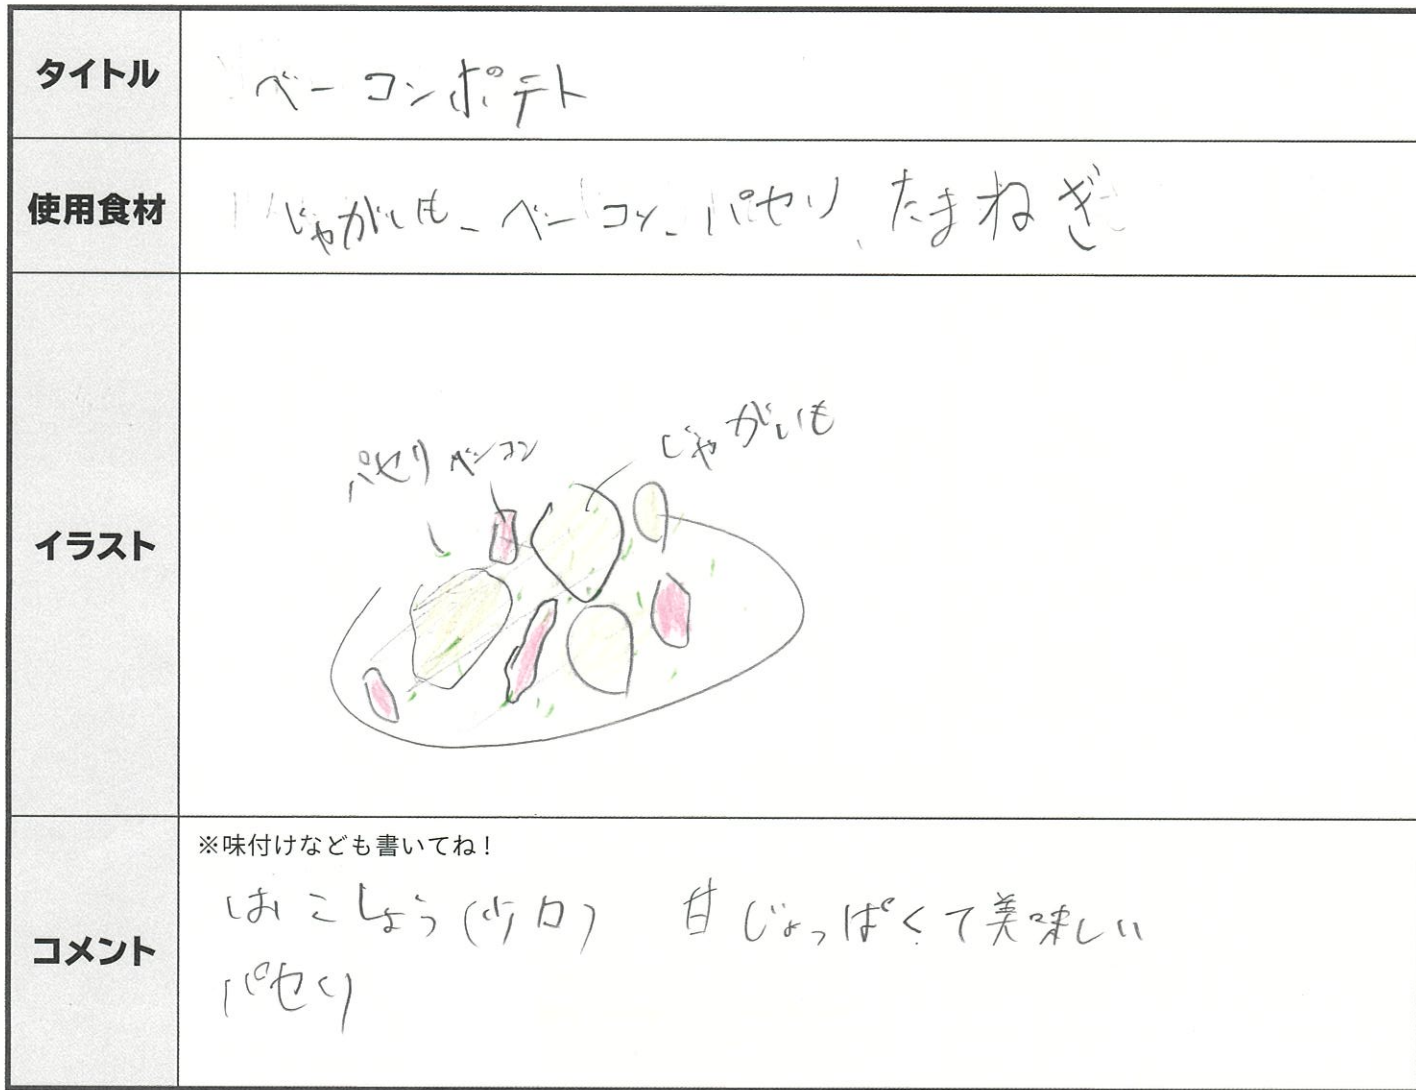 タイトル
ベーコンポテト
使用食材
じゃがいも、ベーコン、パセリ、たまねぎ
イラスト
パセリ ベーコン じゃがいも
コメント
※味付けなども書いてね！
こしょう 甘じょっぱくて美味しい
パセリ